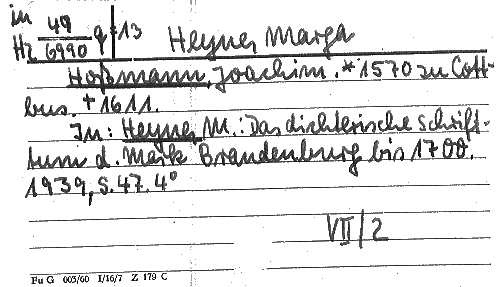 in 49 q 13
Hz 6990 Heyne, Marga
Hoffmann, Joachim. *1570 zu Cott-
bus. +1611.
In: Heyne, M.: Das dichterische Schrift-
tum d. Mark Brandenburg bis 1700.
1939, S. 47. 4°
VII/2
Fu G 003/60 I/16/7 Z 179 C